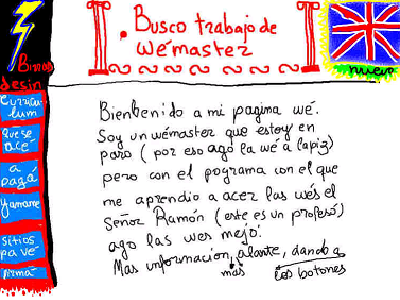 Busco trabajo de
wémaster
Buros
desin
nuevo
Curricu
lum
que se
ace
a
pagá
Yamame
sitios
pa ve
firmá
Bienbenido a mi pagina wé.
Soy un wémaster que estoy en
paro (por eso ago la wé a lapiz)
pero con el pograma con el que
me aprendio a acer las wés el
Señor Ramón (este es un profesó)
ago las wes mejo.
Mas informacion, alante, dando a
mas
los botones